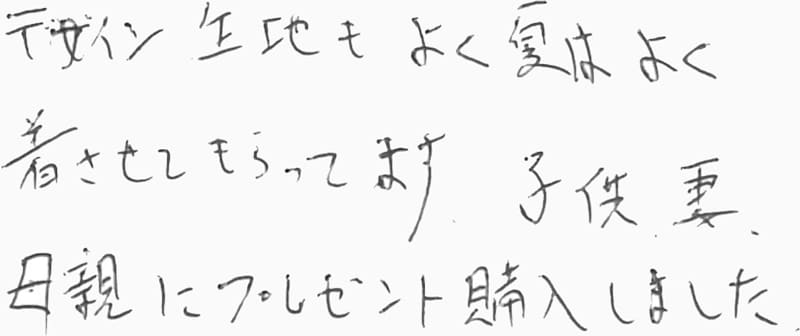 デザイン 生地も よく 夏は よく
着させて もらってます. 子供、妻、
母親 に プレゼント 購入しました.